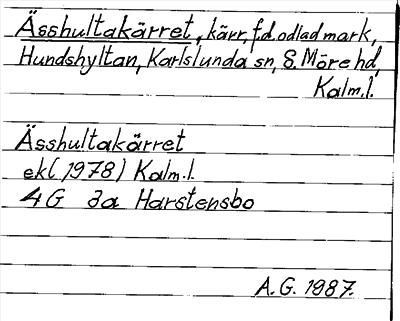 Ässhultakärret, kärr, f.d. odlad mark,
Hundshyltan, Karlslunda sn, S. Möre hd,
Kalm.l.
Ässhultakärret
ekl (1978) Kalm.l.
4G da Harstensbo
A.G. 1987.